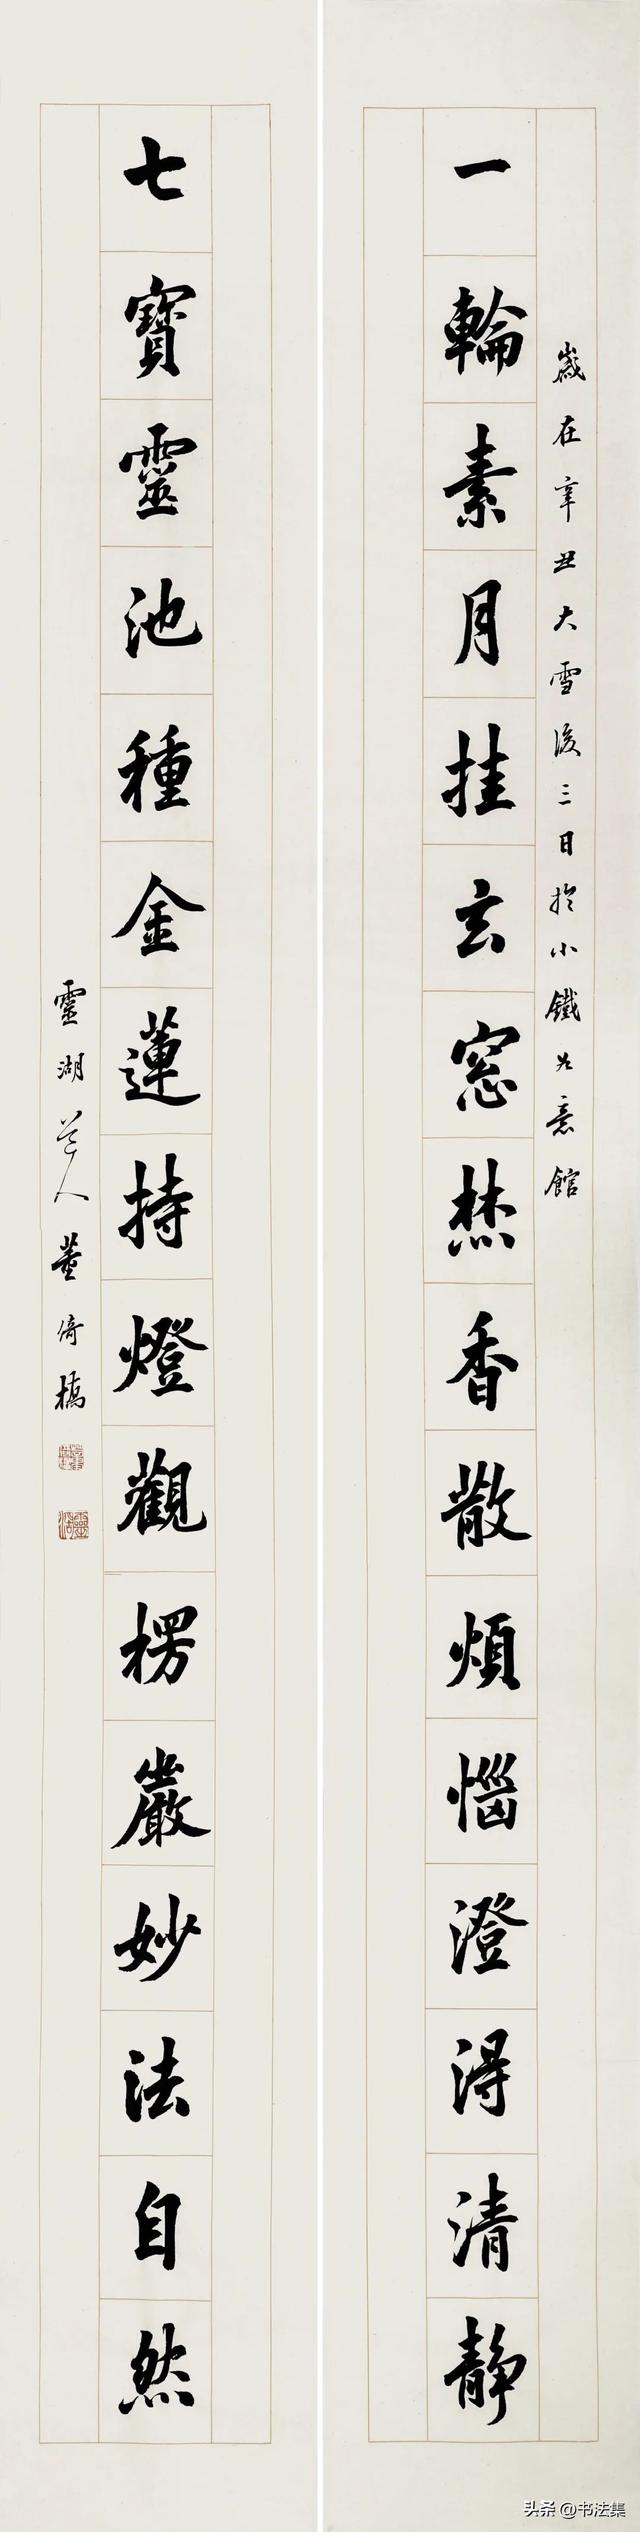 歲在辛丑大雪後三日於小鐵如意館
一輪素月挂玄窓焚香散煩惱澄淂清静
七寶靈池種金蓮持燈觀楞嚴妙法自然
靈湖道人董倚橋
头条 @书法集